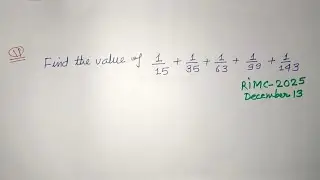 Q) Find the value of 1/15 + 1/35 + 1/63 + 1/99 + 1/143
RiMC-2025
December 13